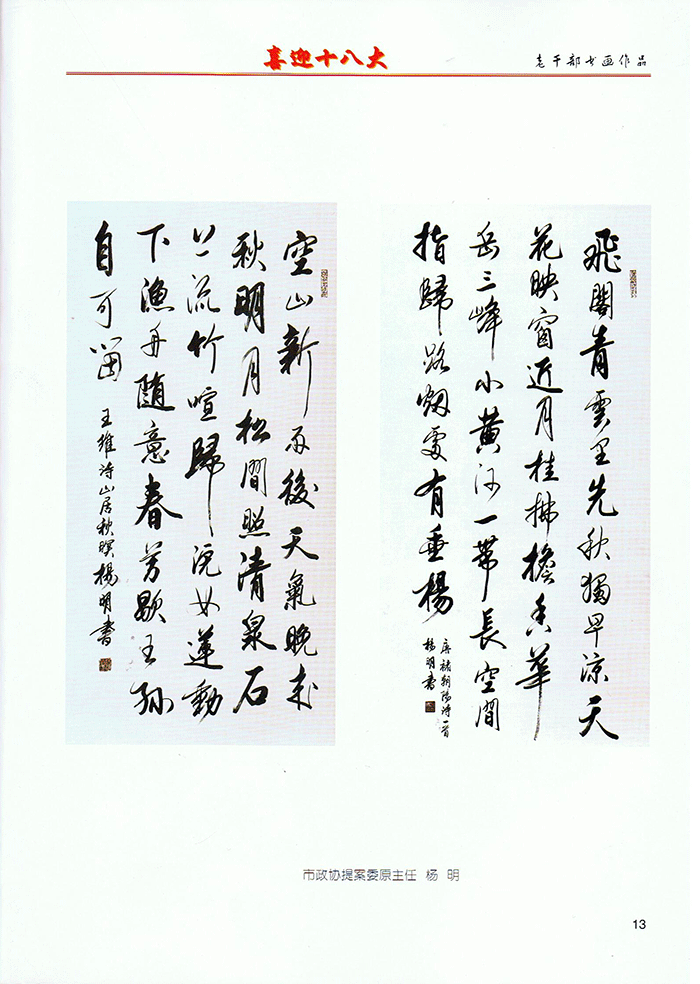 喜迎十八大
老干部书画作品
飛閣青雲里先秋獨早涼天
花映窗近月桂拂檐香華
岳三峰小黃河一帶長空間
指歸路烟處有垂楊
唐褚朝陽詩一首
楊明書
空山新雨後天氣晚來
秋明月松間照清泉石
上流竹喧歸浣女蓮動
下漁舟隨意春芳歇王孫
自可留
王維诗山居秋暝楊明書
市政协提案委原主任 杨 明
13